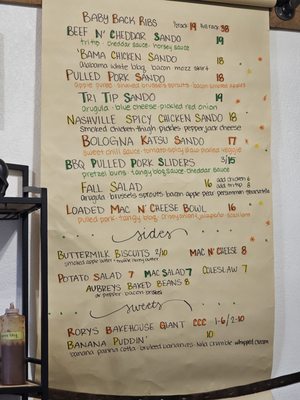 BABY BACK RIBS ½rack 19 full rack 38
BEEF N' CHEDDAR SANDO 19
tri tip · cheddar sauce · horsey sauce
'BAMA CHICKEN SANDO 18
Alabama white bbq · bacon
PULLED PORK SANDO 18
TRI TIP SANDO 19
arugula · blue cheese · pickled red onion
NASHVILLE SPICY CHICKEN SANDO 18
smoked chicken thigh · pickles · pepper jack cheese
BOLOGNA KATSU SANDO 17
BBQ PULLED PORK SLIDERS 3/15
pretzel buns · tangy bbq sauce · cheddar sauce
FALL SALAD 16 add chicken 6
add tri tip 8
arugula · brussels sprouts · bacon · apple · pear · persimmon
LOADED MAC N' CHEESE BOWL 16
pulled pork · tangy bbq · crispy onions · jalapeño · scallions
sides
BUTTERMILK BISCUITS 2/10 MAC N' CHEESE 8
smoked apple butter
POTATO SALAD 7 MAC SALAD 7 COLESLAW 7
AUBREYS BAKED BEANS 8
dr pepper · bacon · brisket
sweets
RORYS BAKEHOUSE GIANT CCC 1-6/2-10
BANANA PUDDIN' 10
banana panna cotta · bruleed bananas · nilla crumble · whipped cream